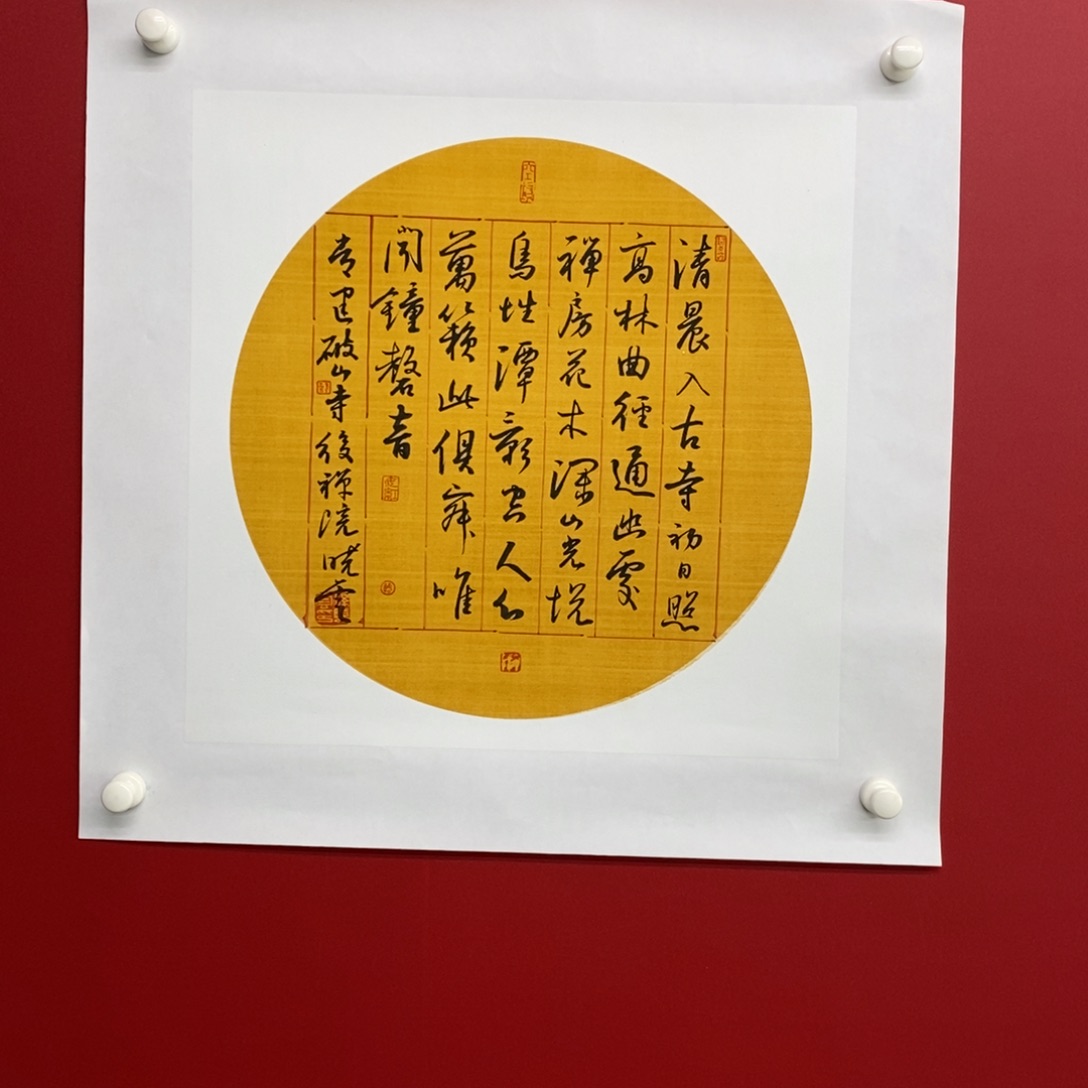 清晨入古寺初日照
高林曲徑通幽處
禪房花木深山光悅
鳥性潭影空人心
萬籟此俱寂唯
聞鐘磬音
常建破山寺後禪院曉雲